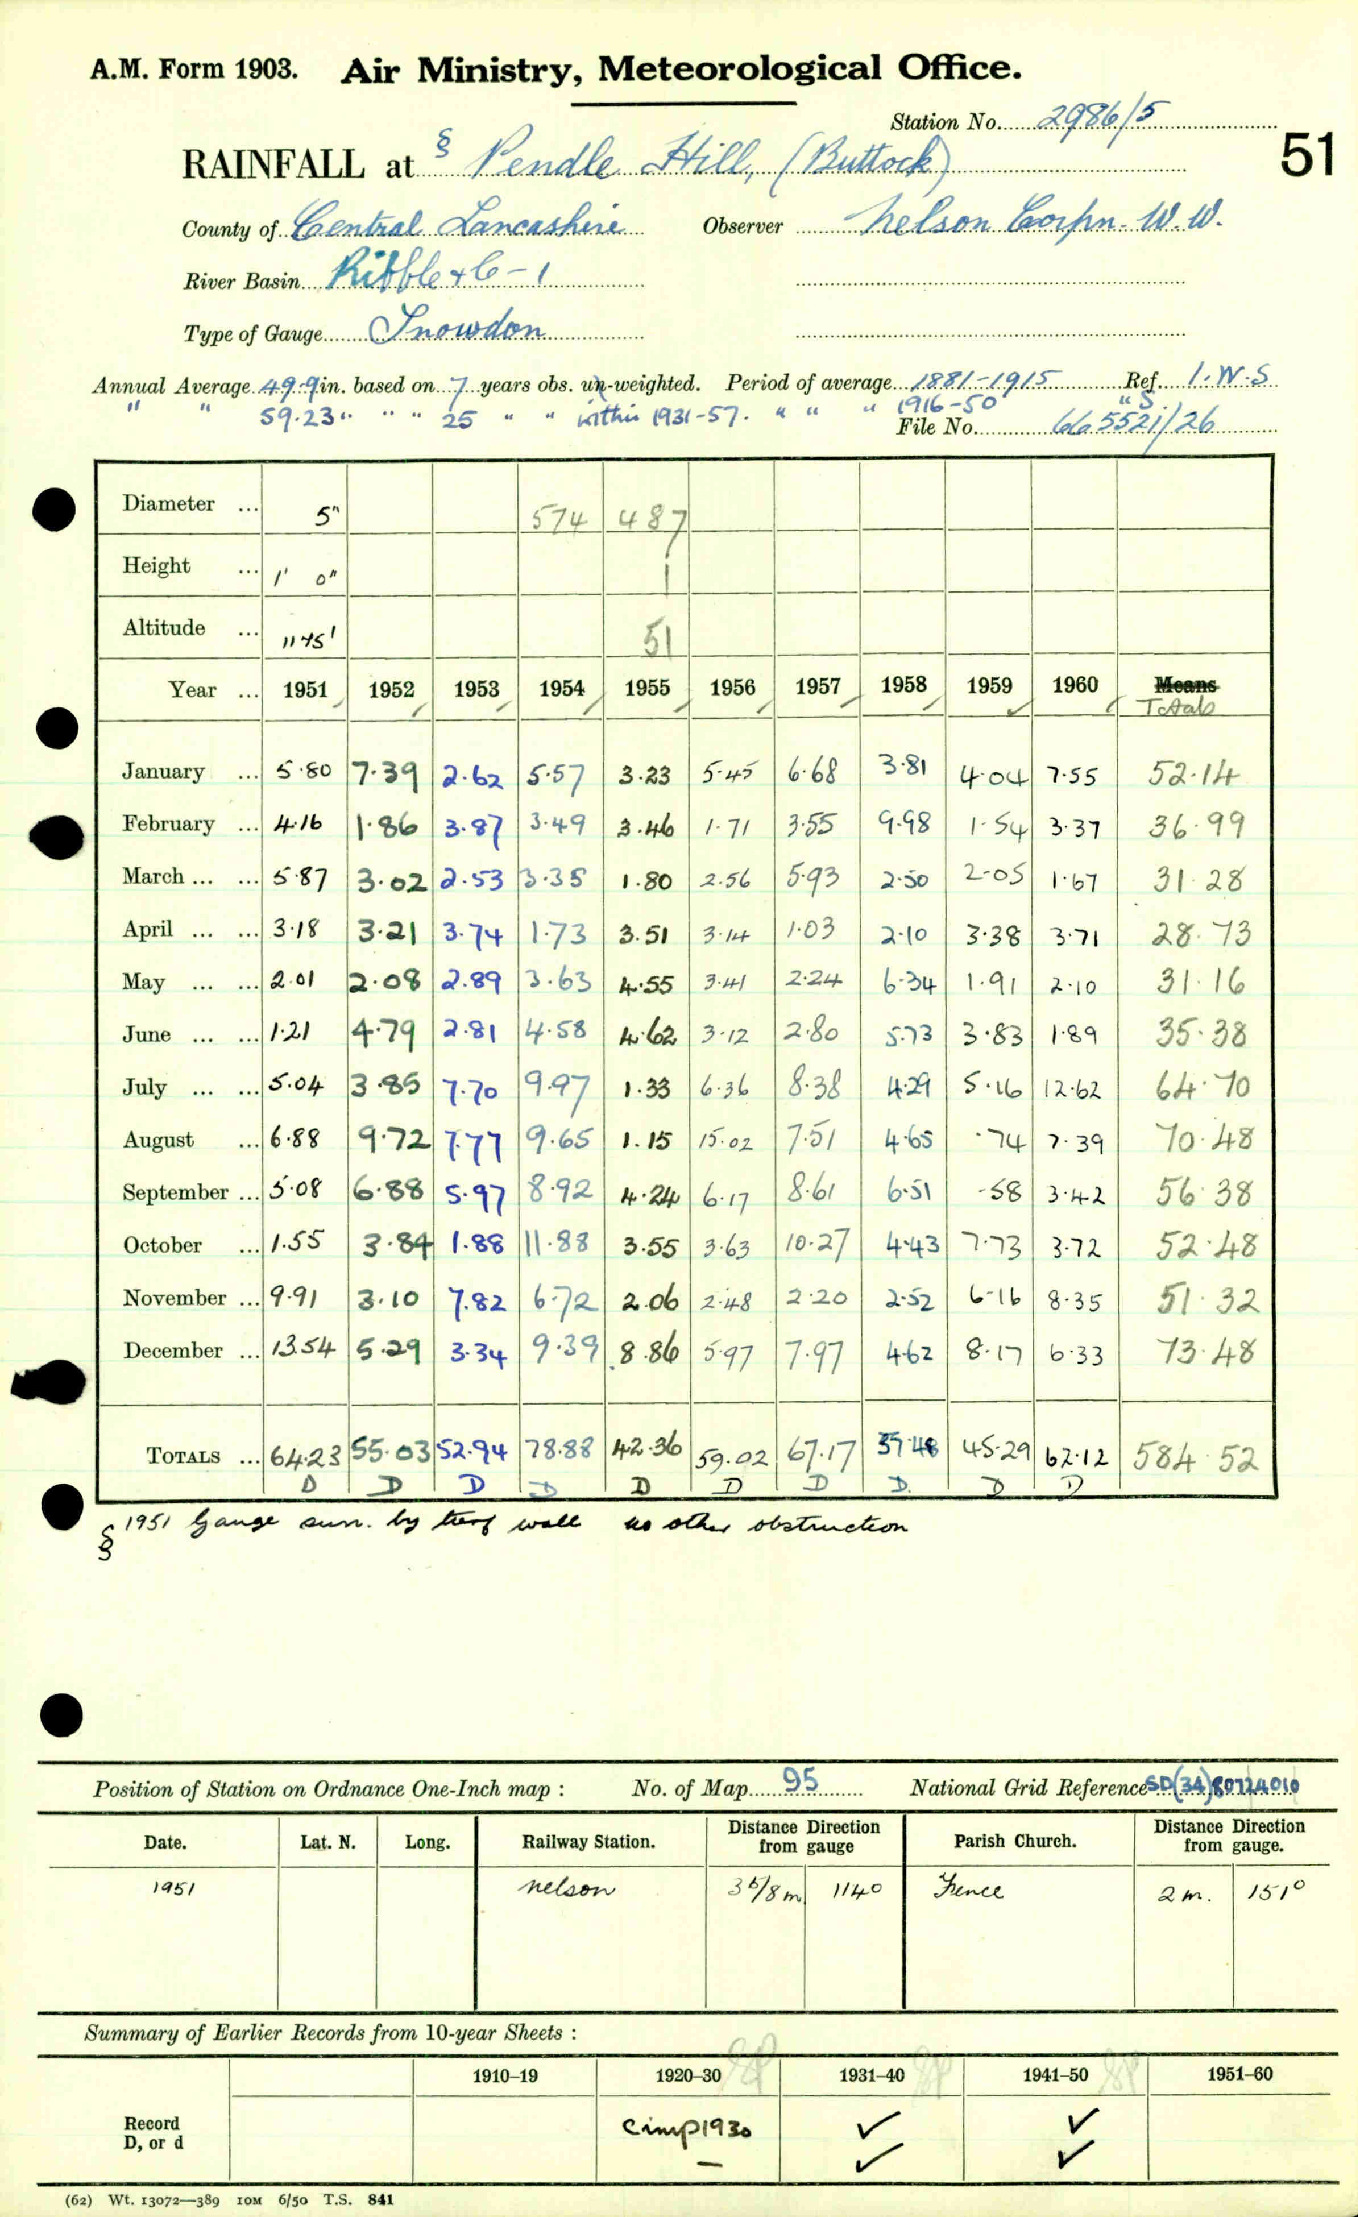 A.M. Form 1903. Air Ministry, Meteorological Office.
Station No. 2986/5
51
RAINFALL at § Pendle Hill, (Buttock)
County of Central Lancashire Observer Nelson Corpn. W.W.
River Basin Ribble + C - 1
Type of Gauge Snowdon
Annual Average 49.9 in. based on 7 years obs. un-weighted. Period of average 1881-1915 Ref. I.W.S
" " 59.23 " " " 25 " " within 1931-57. " " " 1916-50 " S.
File No. 665521/26
Diameter ... 5" 574 487
Height ... 1' 0" 1
Altitude ... 1175' 51
Year ... 1951 1952 1953 1954 1955 1956 1957 1958 1959 1960 Means
Totals
January ... 5.80 7.39 2.62 5.57 3.23 5.45 6.68 3.81 4.04 7.55 52.14
February ... 4.16 1.86 3.87 3.49 3.46 1.71 3.55 9.98 1.54 3.37 36.99
March ... ... 5.87 3.02 2.53 3.35 1.80 2.56 5.93 2.50 2.05 1.67 31.28
April ... ... 3.18 3.21 3.74 1.73 3.51 3.14 1.03 2.10 3.38 3.71 28.73
May ... ... 2.01 2.08 2.89 3.63 4.55 3.41 2.24 6.34 1.91 2.10 31.16
June ... ... 1.21 4.79 2.81 4.58 4.62 3.12 2.80 5.73 3.83 1.89 35.38
July ... ... 5.04 3.85 7.70 9.97 1.33 6.36 8.38 4.29 5.16 12.62 64.70
August ... 6.88 9.72 7.77 9.65 1.15 15.02 7.51 4.65 .74 7.39 70.48
September ... 5.08 6.88 5.97 8.92 4.24 6.17 8.61 6.51 .58 3.42 56.38
October ... 1.55 3.84 1.88 11.88 3.55 3.63 10.27 4.43 7.73 3.72 52.48
November ... 9.91 3.10 7.82 6.72 2.06 2.48 2.20 2.52 6.16 8.35 51.32
December ... 13.54 5.29 3.34 9.39 8.86 5.97 7.97 4.62 8.17 6.33 73.48
TOTALS ... 64.23 55.03 52.94 78.88 42.36 59.02 67.17 57.48 45.29 62.12 584.52
D D D D D D D D. D D
§ 1951 Gauge surr. by turf wall no other obstruction
Position of Station on Ordnance One-Inch map : No. of Map 95 National Grid Reference SD(34)80724010
Date. Lat. N. Long. Railway Station. Distance from Direction gauge Parish Church. Distance from Direction gauge.
1951 Nelson 3 5/8 m 114° Fence 2 m. 151°
Summary of Earlier Records from 10-year Sheets :
1910–19 1920–30 1931–40 1941–50 1951–60
Record Cimp 1930 ✓ ✓
D, or d – ✓ ✓
(62) Wt. 13072—389 10M 6/50 T.S. 841